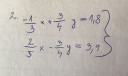 2. -1/3 x + 3/4 y = 1,8 }
2/5 x - 3/4 y = 3,1